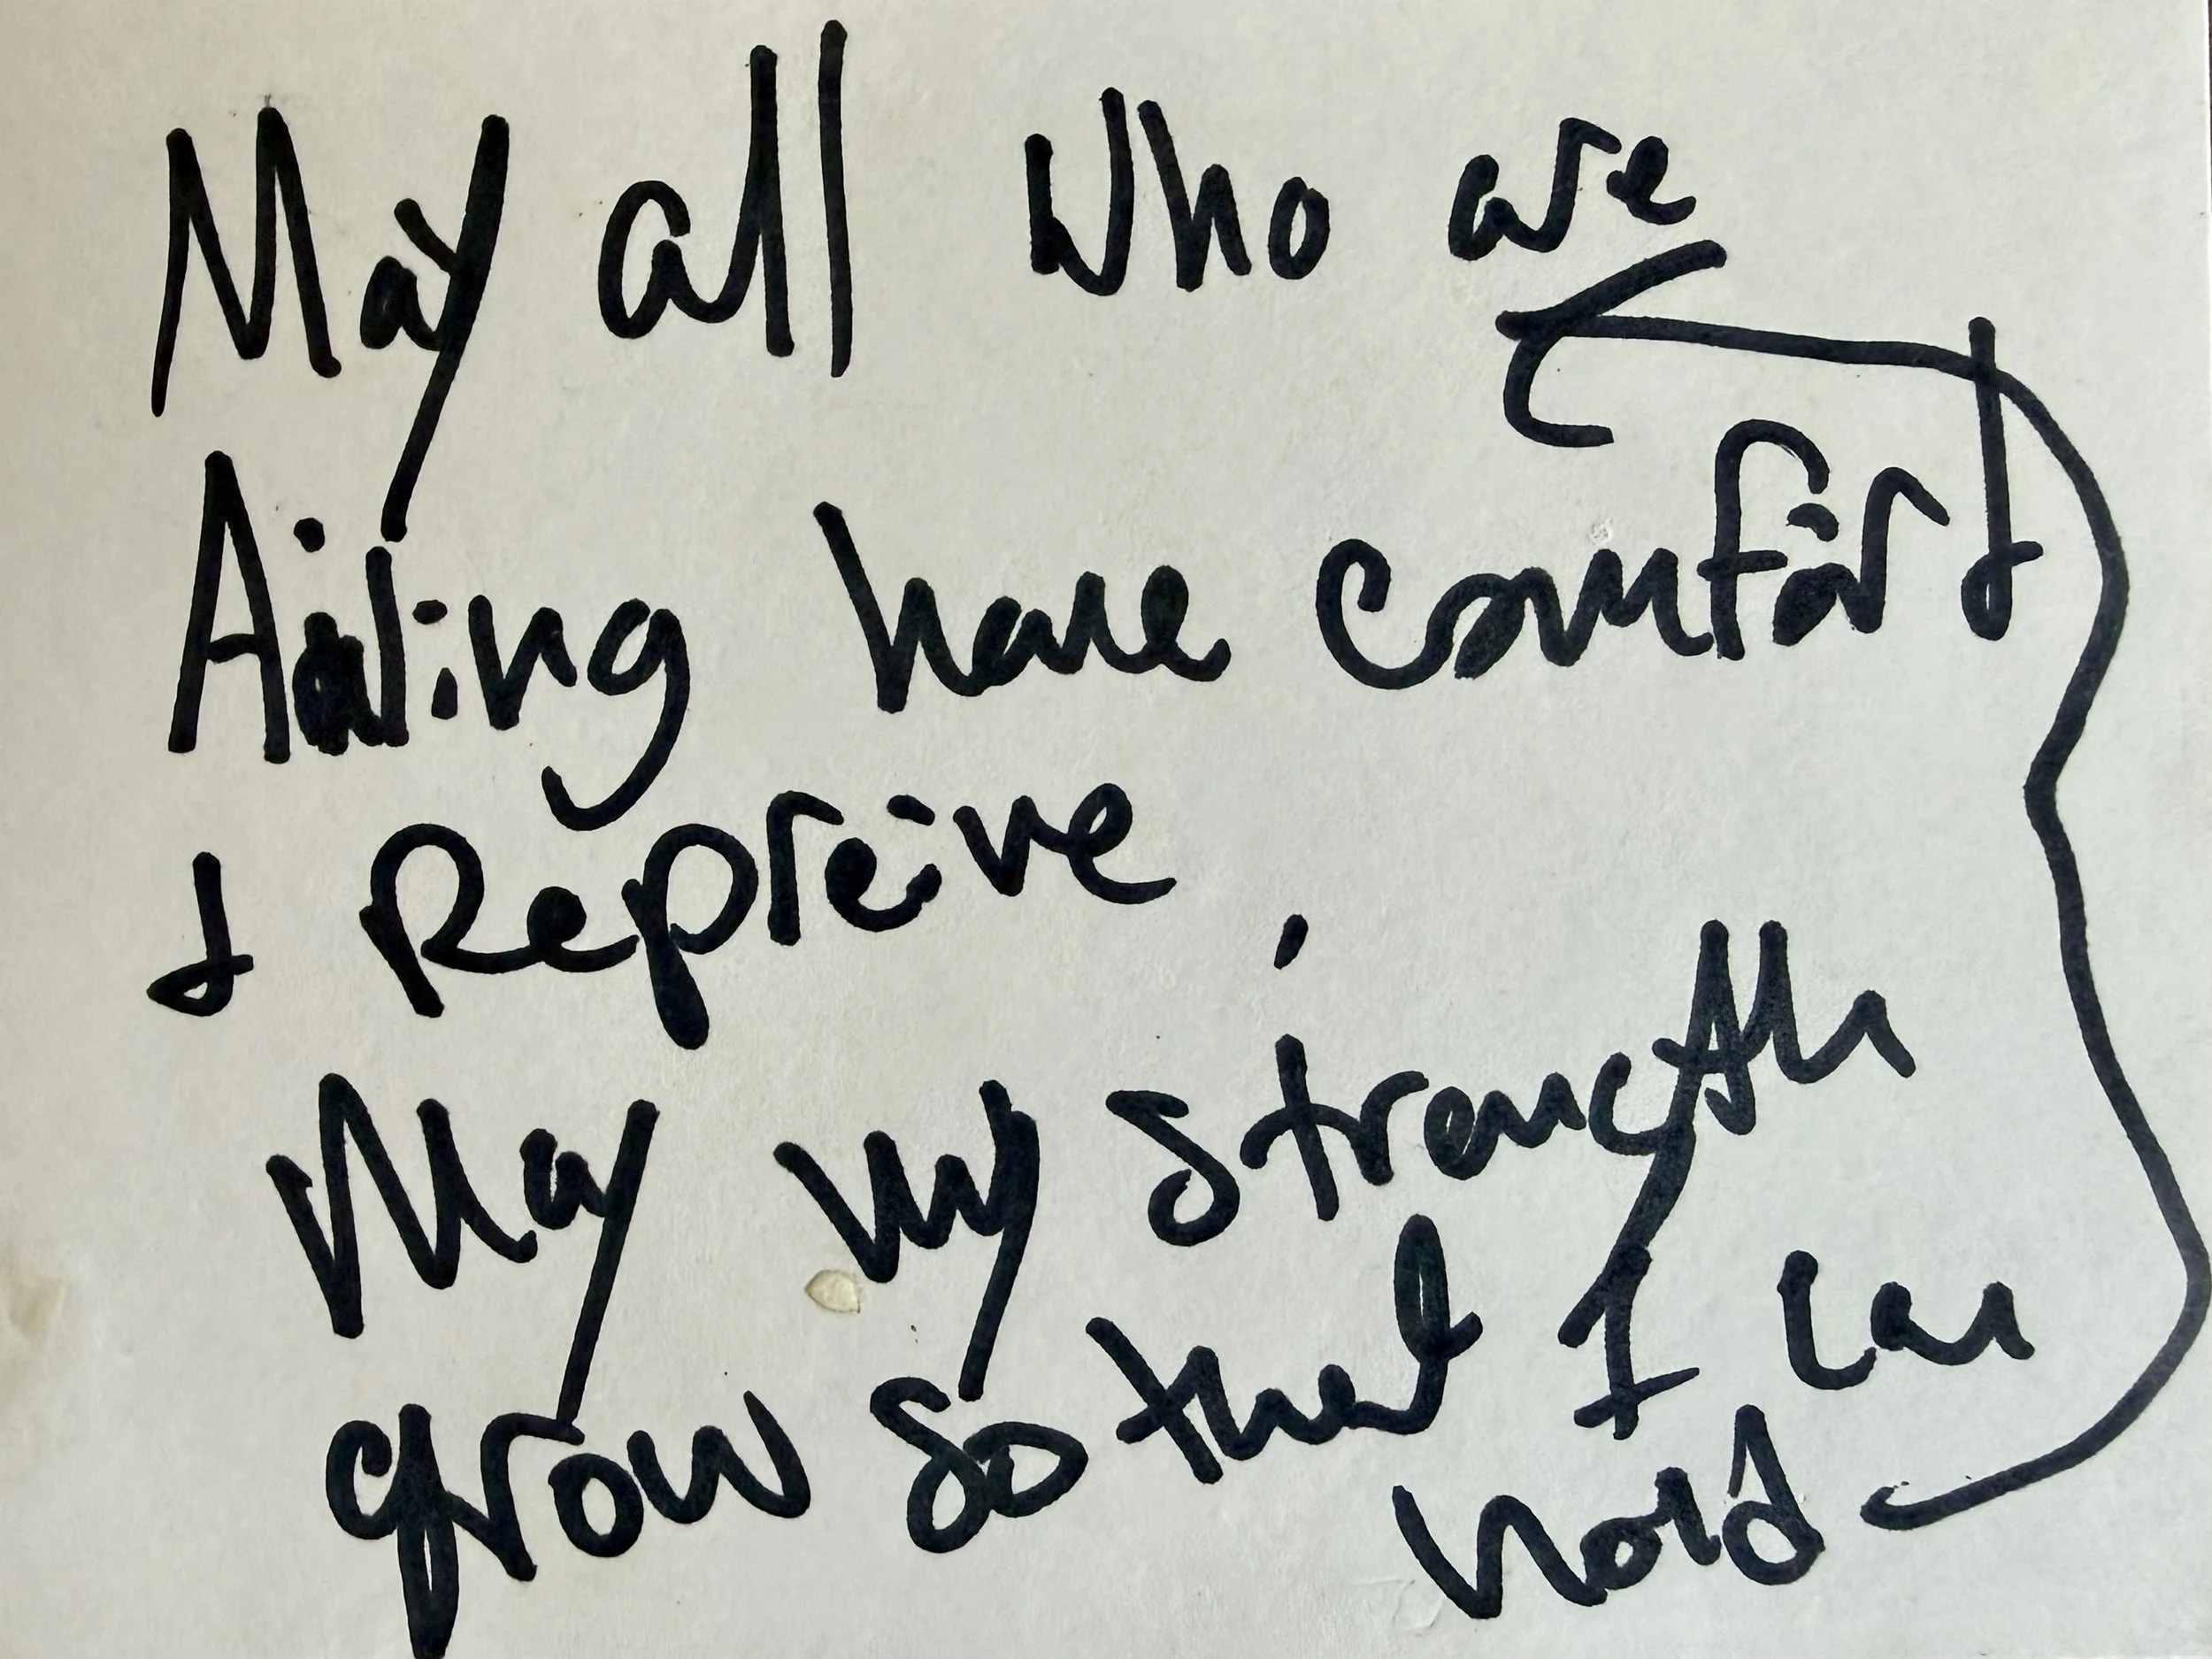 May all who are
Ailing have comfort
& Repreive
May my strength
grow so that I can
hold